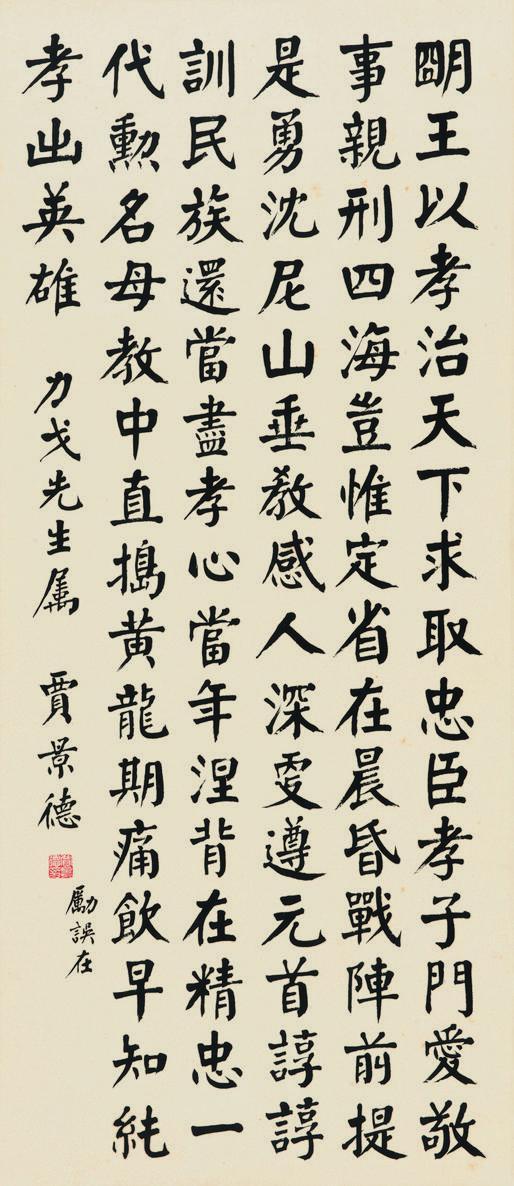 朙王以孝治天下求取忠臣孝子門愛敬
事親刑四海豈惟定省在晨昏戰陣前提
是勇沈尼山垂教感人深更遵元首諄諄
訓民族還當盡孝心當年涅背在精忠一
代勳名母教中直搗黃龍期痛飲早知純
孝出英雄 力戈先生属 賈景德
勵誤在